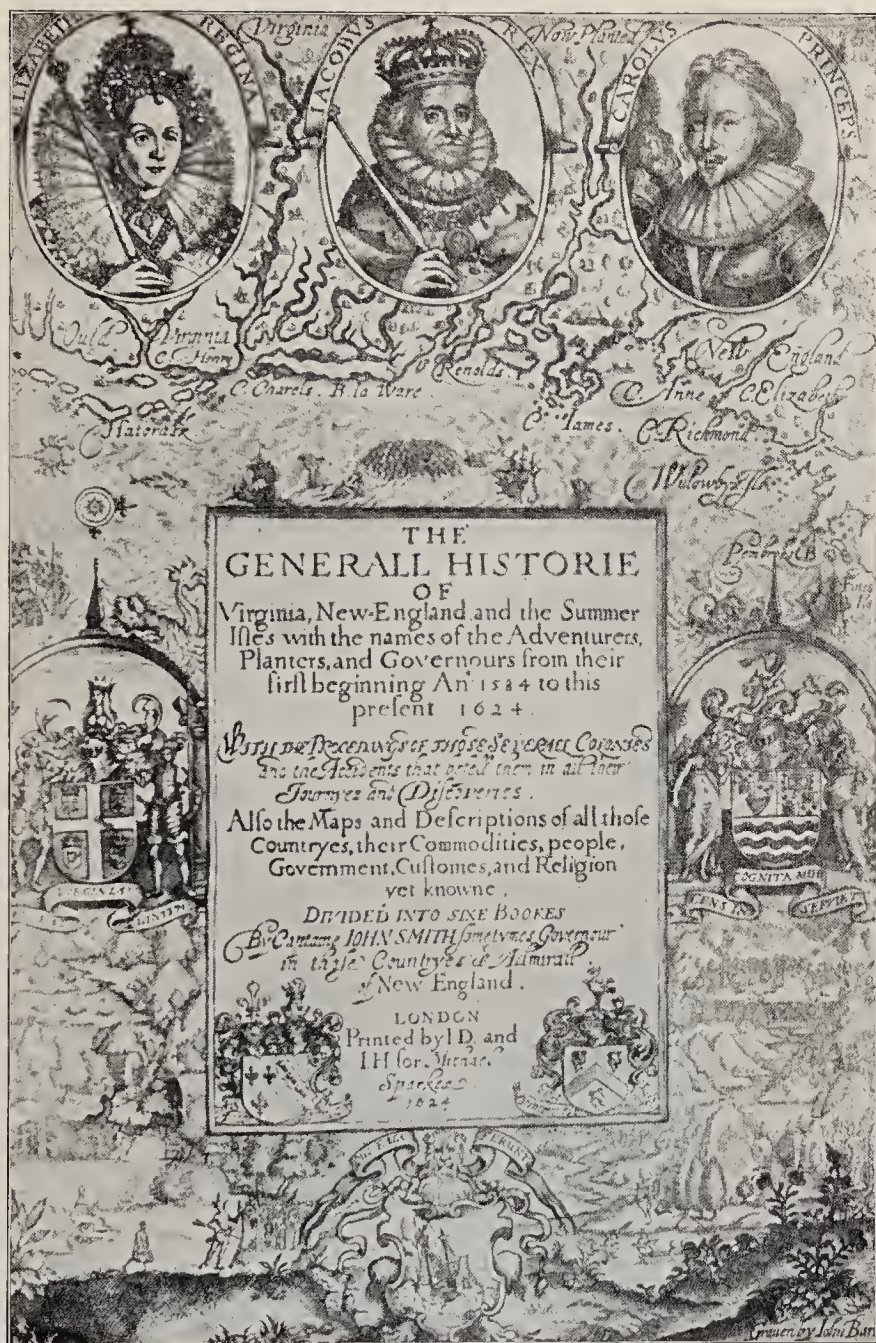 ELIZABETH REGINA
IACOBVS REX
CAROLVS PRINCEPS
Virginia
Now Planted
Ould Virginia
C. Henry
C. Charels. B. la Ware.
Renolds
Hatorask
New England
C. Anne
C. Elizabeth
C. Iames.
C. Richmond.
Willowbys Iles
Pembroks B
THE
GENERALL HISTORIE
OF
Virginia, New-England, and the Summer
Isles with the names of the Adventurers,
Planters, and Governours from their
first beginning An: 1584 to this
present 1624.
WITH THE PROCEDINGS OF THOSE SEVERALL COLONIES
and the Accidents that befell them in all their
Journyes and Discoveries.
Also the Maps and Descriptions of all those
Countryes, their Commodities, people,
Government, Customes, and Religion
yet knowne.
DIVIDED INTO SIXE BOOKES
By Captaine IOHN SMITH sometymes Governour
in those Countryes & Admirall
of New England.
LONDON
Printed by I D and
I H for Michael
Sparkes
1624
GENS IN COGNITA MIHI SERVIET
Graven by Iohn Bar